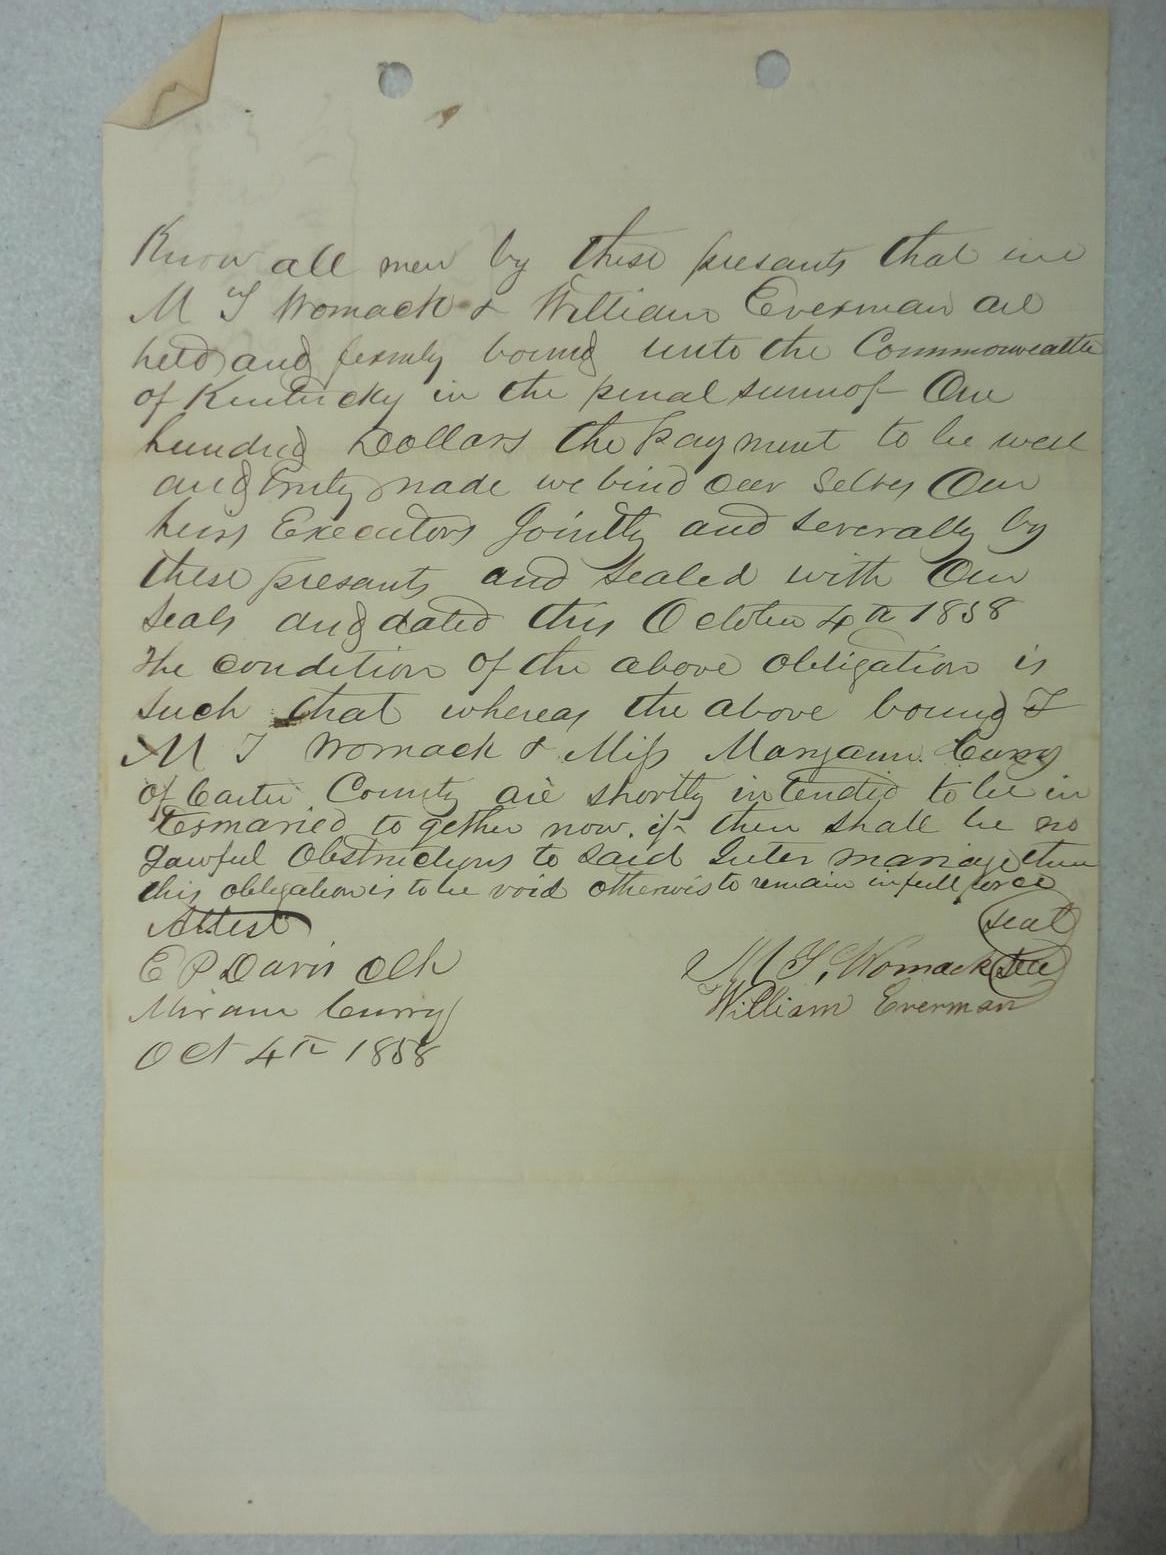 Know all men by these presants that we
M T Womack & William Everman are
held and firmly bound unto the Commonwealth
of Kentucky in the penal summof One
hundred Dollars the payment to be well
and truly made we bind our selves Our
heirs Executors Jointly and severally by
these presants and sealed with Our
seals and dated this October 4th 1858
The condition of the above obligation is
such that whereas the above bound T
M T Womack & Miss Maryann Curry
of Carter County are shortly intended to be in
termaried to gether now if ther shall be no
Lawful Obstructions to said Inter mariage then
this obligation is to be void otherwis to remain in full force
Attest seal
E P Davis Clk M T, Womack seal
Hiram Curry William Everman
Oct 4th 1858